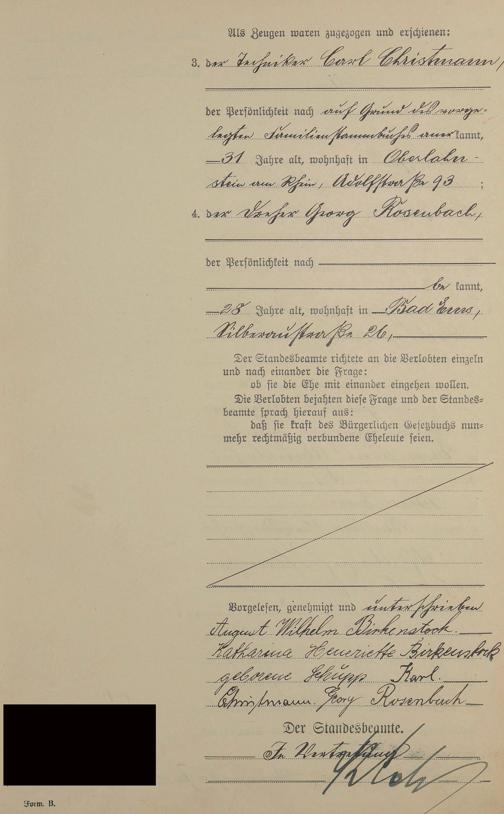 Als Zeugen waren zugezogen und erschienen:
3. der Techniker Carl Christmann,
der Persönlichkeit nach auf Grund des vorge-
legten Familienstammbuches anerkannt,
31 Jahre alt, wohnhaft in Oberlahn-
stein am Rhein, Adolfstraße 93 ;
4. der Dreher Georg Rosenbach,
der Persönlichkeit nach
be kannt,
28 Jahre alt, wohnhaft in Bad Ems,
Silberaustraße 26,
Der Standesbeamte richtete an die Verlobten einzeln
und nach einander die Frage:
ob sie die Ehe mit einander eingehen wollen.
Die Verlobten bejahten diese Frage und der Standes-
beamte sprach hierauf aus:
daß sie kraft des Bürgerlichen Gesetzbuchs nun-
mehr rechtmäßig verbundene Eheleute seien.
Vorgelesen, genehmigt und unterschrieben
August Wilhelm Birkenstock.
Katharina Henriette Birkenstock
geborene Schupp Karl.
Christmann. Georg Rosenbach
Der Standesbeamte.
In Vertretung
Form. B.